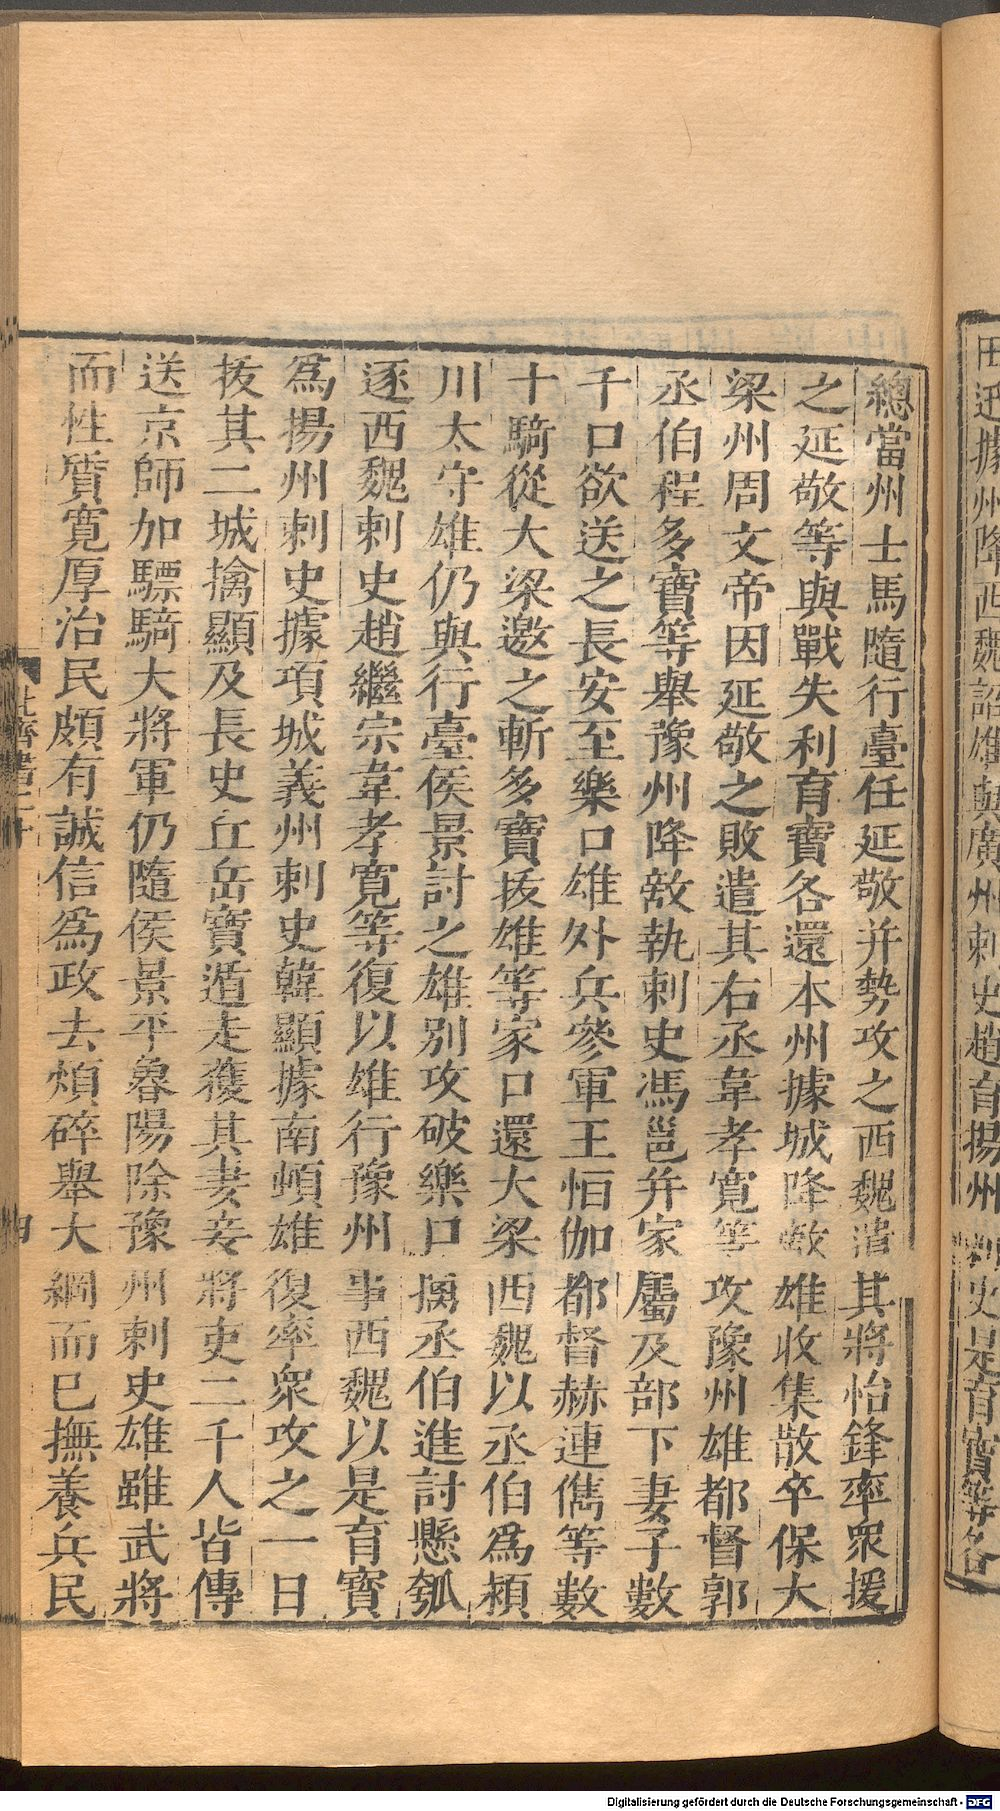 田迅據州降西魏詔雄與廣州刺史趙育揚州刺史是育寶等各
總當州士馬隨行臺任延敬并勢攻之西魏遣其將怡鋒率衆援
之延敬等與戰失利育寶各還本州據城降敵雄收集散卒保大
梁州周文帝因延敬之敗遣其右丞韋孝寬等攻豫州雄都督郭
丞伯程多寶等舉豫州降敵執刺史馮邕并家屬及部下妻子數
千口欲送之長安至樂口雄外兵參軍王恒伽都督赫連儁等數
十騎從大梁邀之斬多寶拔雄等家口還大梁西魏以丞伯爲潁
川太守雄仍與行臺侯景討之雄別攻破樂口擒丞伯進討懸瓠
逐西魏刺史趙繼宗韋孝寬等復以雄行豫州事西魏以是育寶
爲揚州刺史據項城義州刺史韓顯據南頓雄復率衆攻之一日
拔其二城擒顯及長史丘岳寶遁走獲其妻妾將吏二千人皆傳
送京師加驃騎大將軍仍隨侯景平魯陽除豫州刺史雄雖武將
而性質寛厚治民頗有誠信爲政去煩碎舉大綱而已撫養兵民
北齊書二十
四
Digitalisierung gefördert durch die Deutsche Forschungsgemeinschaft - DFG